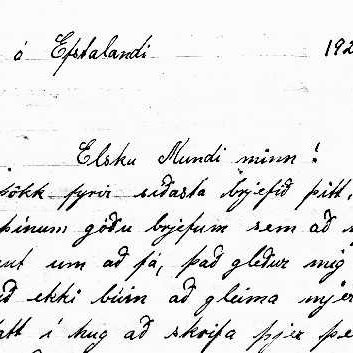 á Efstalandi 192
Elsku Mundi minn!
þökk fyrir síðasta brjefið þitt,
þínum góðu brjefum sem að
um að fá, það gleður mig
ekki búin að gleima mjer
í hug að skrifa þjer